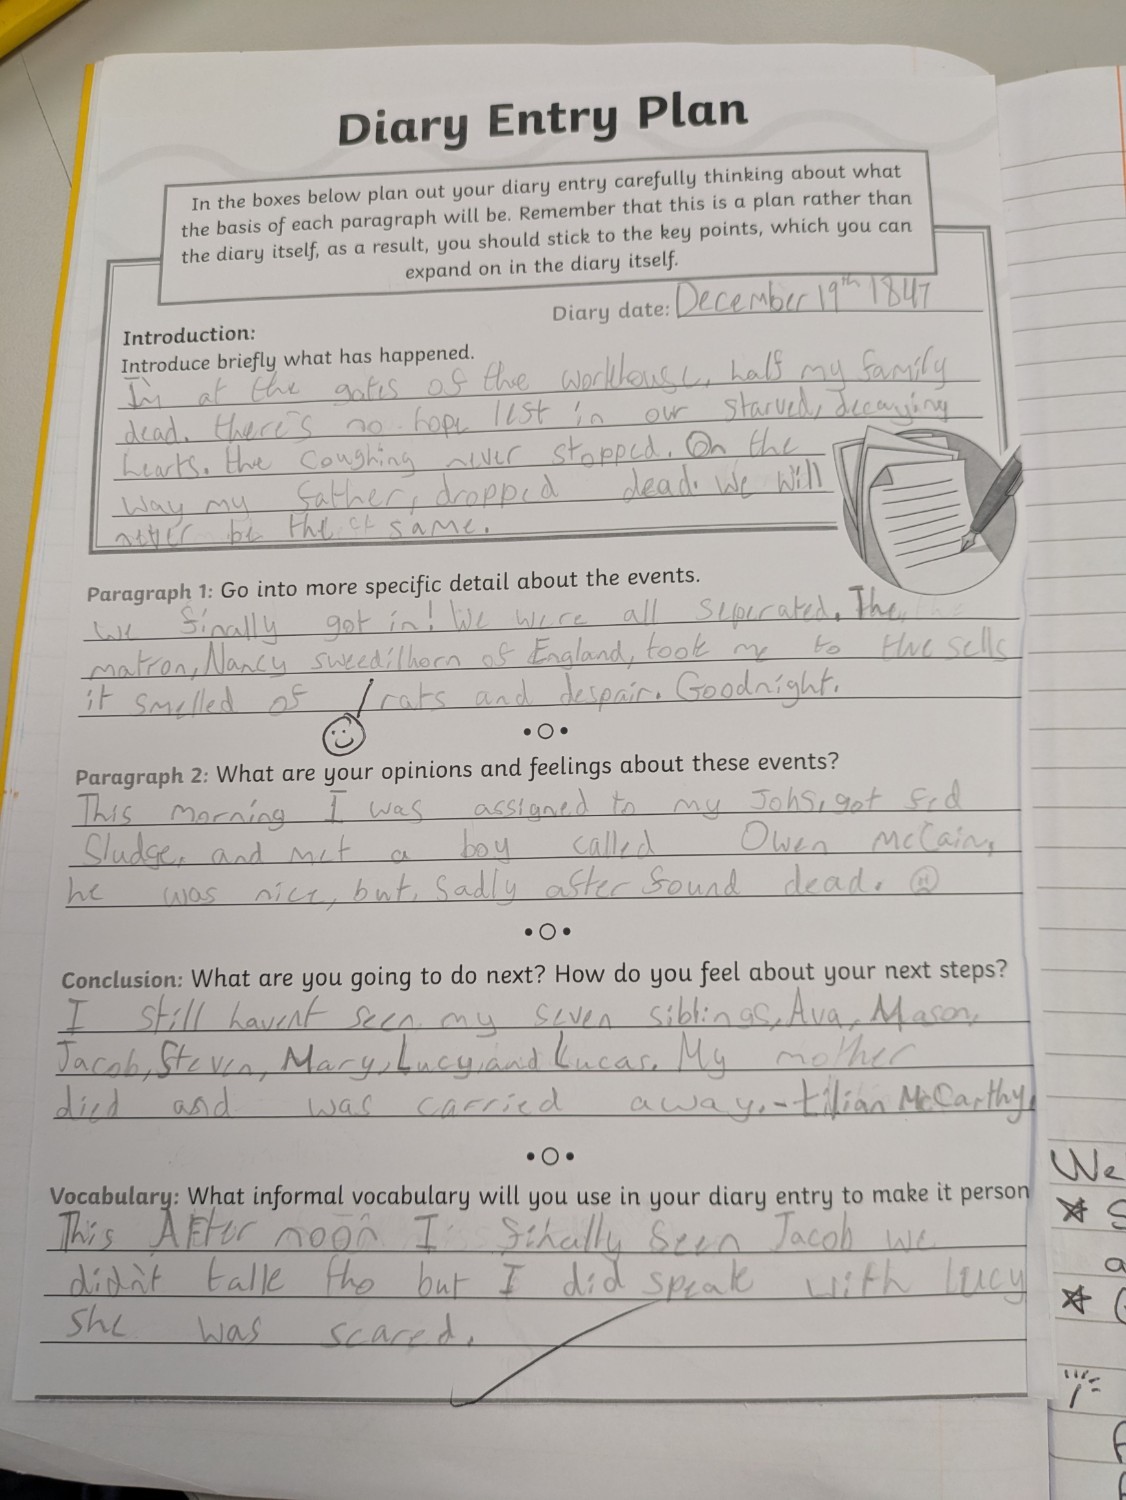 Diary Entry Plan
In the boxes below plan out your diary entry carefully thinking about what
the basis of each paragraph will be. Remember that this is a plan rather than
the diary itself, as a result, you should stick to the key points, which you can
expand on in the diary itself.
Diary date: December 19th 1847
Introduction:
Introduce briefly what has happened.
I'm at the gates of the workhouse, half my family
dead. there's no hope lest in our starved, decaying
hearts. the coughing never stopped. On the
way my father, dropped dead. we will
never be the same.
Paragraph 1: Go into more specific detail about the events.
we finally got in! We were all seperated. The
matron, Nancy sweedilhorn of England, took me to the sells
it smelled of rats and despair. Goodnight.
Paragraph 2: What are your opinions and feelings about these events?
This morning I was assigned to my Johs, got fed
Sludge, and met a boy called Owen McCain,
he was nice, but, Sadly after found dead.
Conclusion: What are you going to do next? How do you feel about your next steps?
I still havent seen my seven siblings, Ava, Mason,
Jacob, Steven, Mary, Lucy, and Lucas. My mother
died and was carried away. - Lilian McCarthy.
Vocabulary: What informal vocabulary will you use in your diary entry to make it person
This AFter noon I finally Seen Jacob we
didn't talk tho but I did speak with Lucy
She was scared.
We